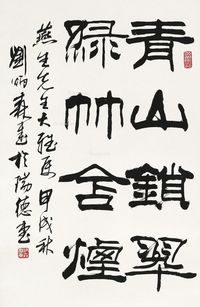 青山鎖翠
綠竹含煙
燕生先生大雅屬 甲戌秋
劉炳森書於陽德書